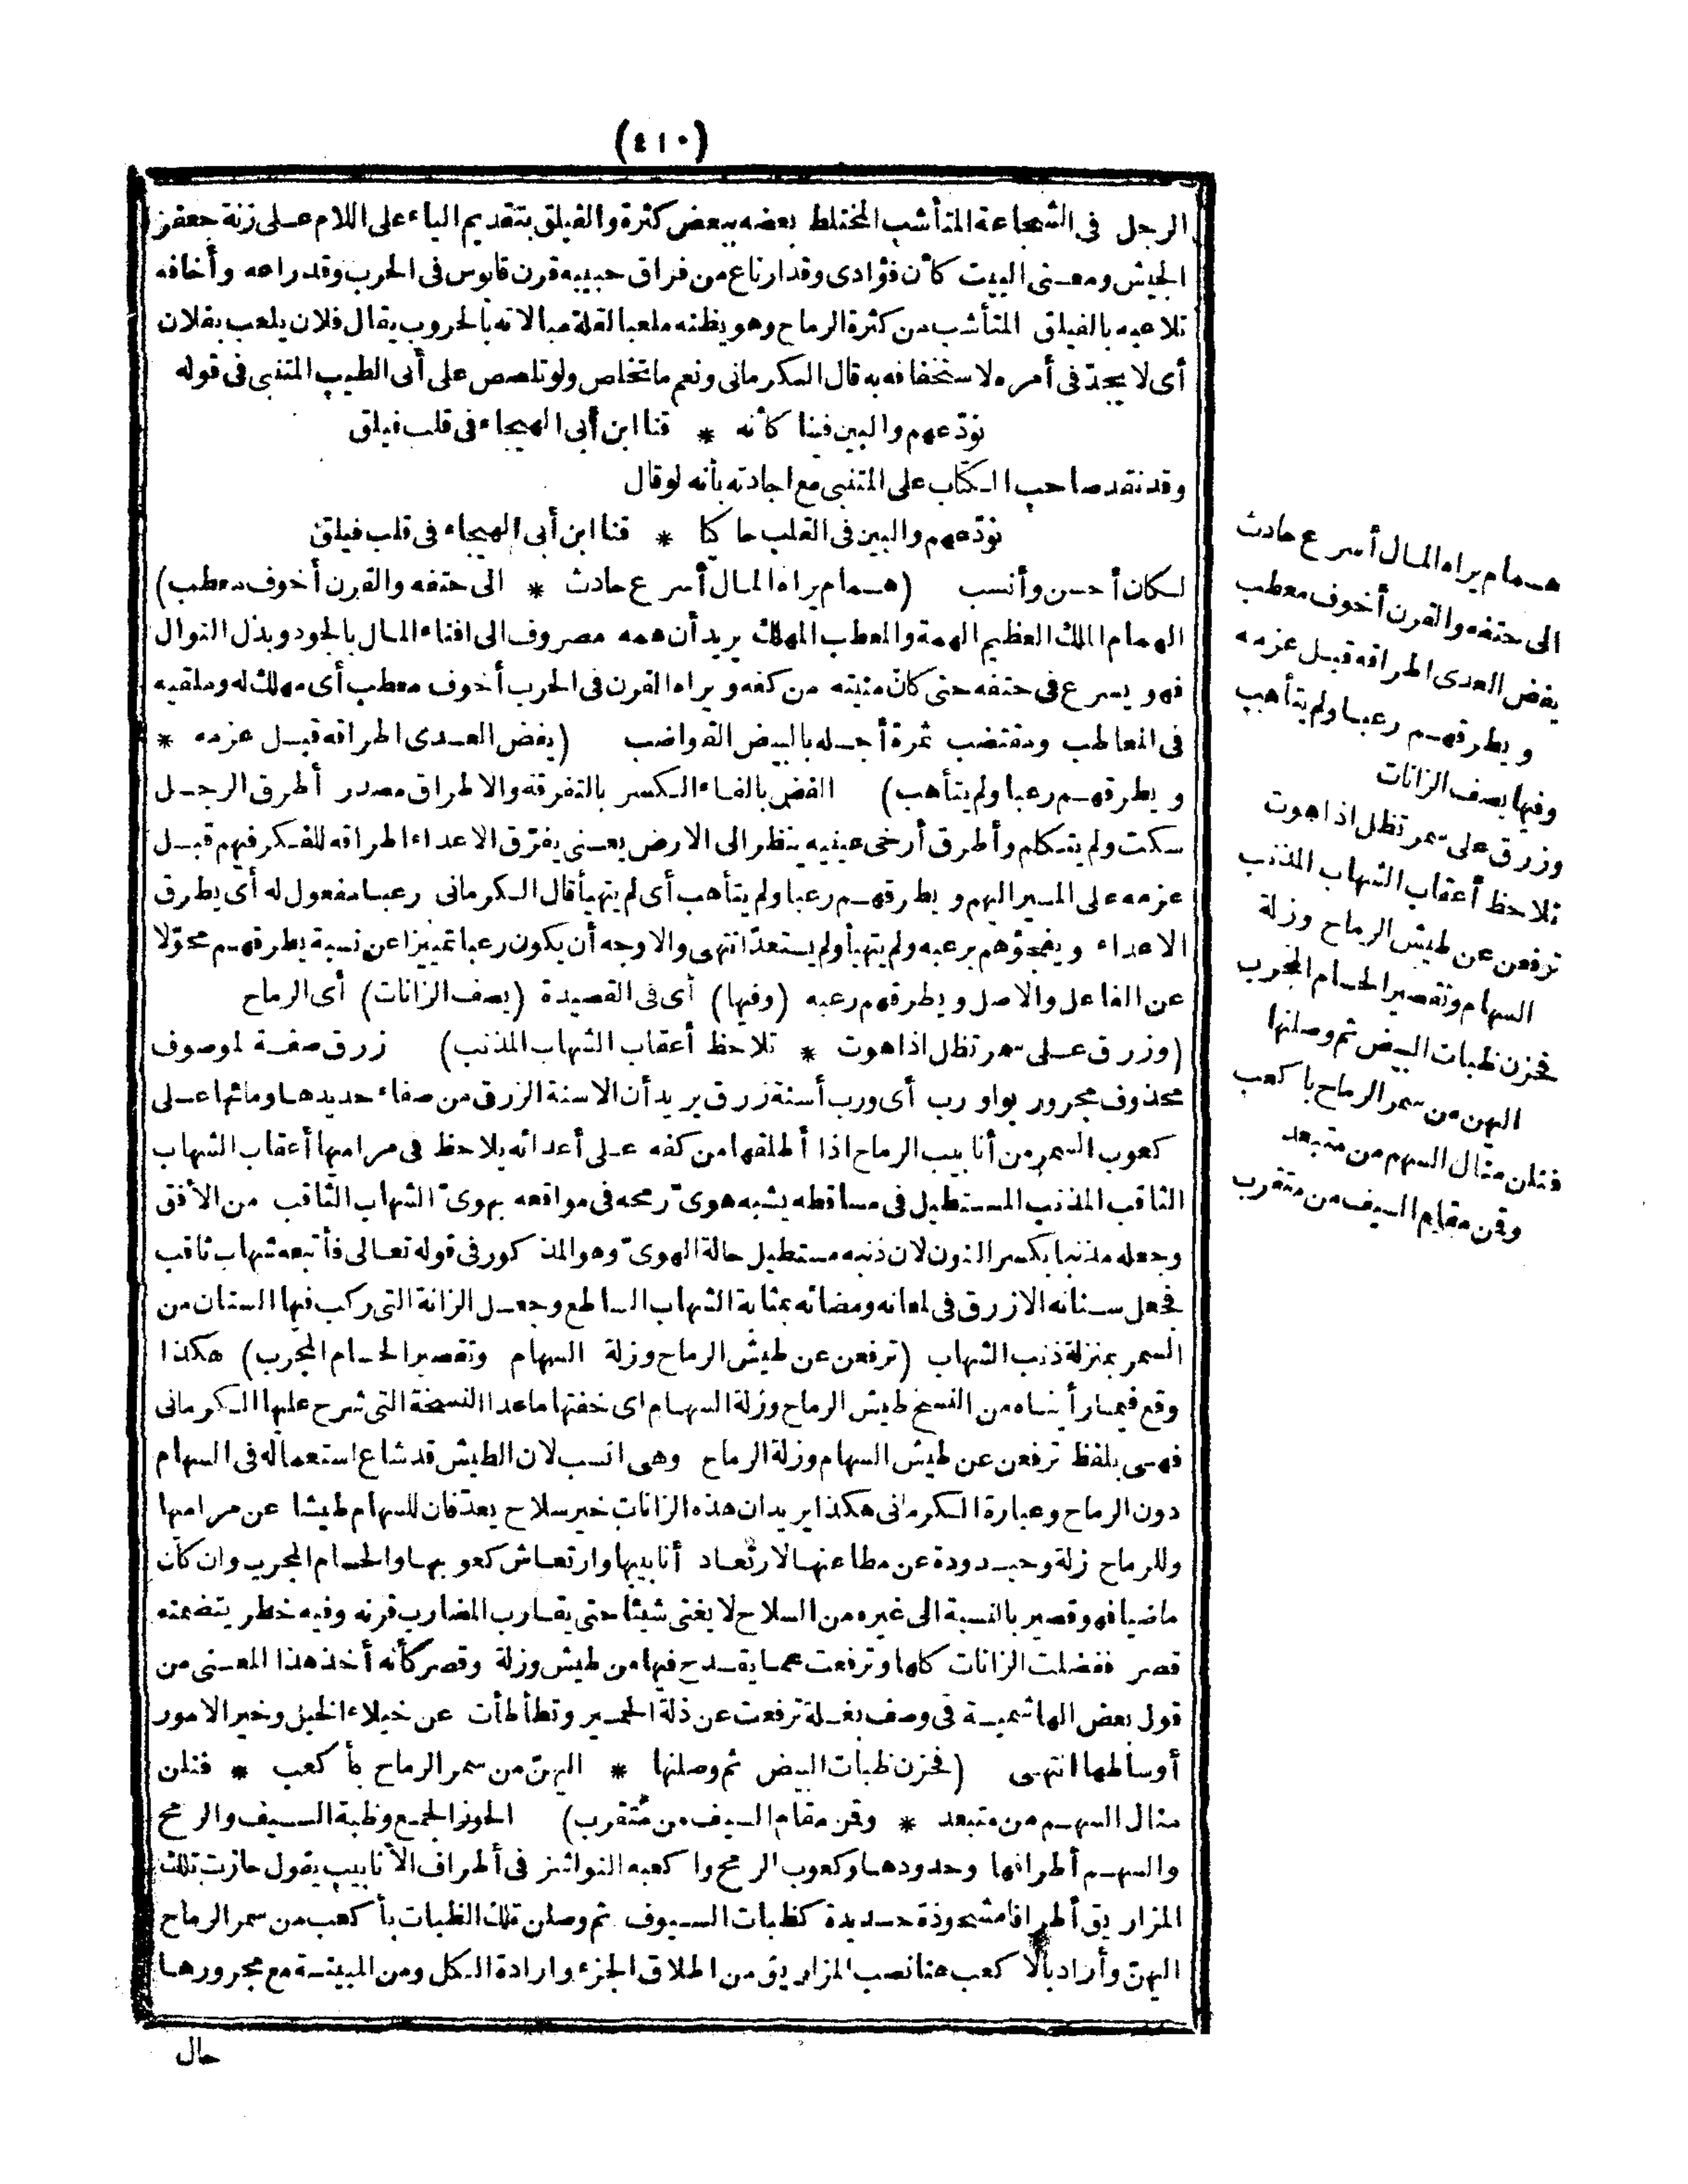 (٤١٠)
الرجل فى الشجاعة المتأشب المختلط بعضه ببعض كثرة والفيلق بتقديم الياء على اللام على زنة جعفر
الجيش ومعنى البيت كأن فؤادى وقد ارتاع من فراق حبيبه قرن قابوس فى الحرب وقد راعه وأخافه
تلاعبه بالفيلق المتأشب من كثرة الرماح وهو يظنه ملعبا لقلة مبالاته بالحروب يقال فلان يلعب بفلان
أى لا يجدّ فى أمره لاستخفافه به قال الكرمانى ونعم ما تخلص ولو تلصص على أبى الطيب المتنبى فى قوله
نودّعهم والبين فينا كأنه * قنا ابن أبى الهيجاء فى قلب فيلق
وقد نقد صاحب الكتاب على المتنبى مع اجادته بأنه لو قال
نودّعهم والبين فى القلب حاكيا * قنا ابن أبى الهيجاء فى قلب فيلق
لكان أحسن وأنسب (همام يراه المال أسرع حادث * الى حتفه والقرن أخوف معطب)
الهمام الملك العظيم الهمة والمعطب المهلك يريد أن همه مصروف الى افناء المال بالجود وبذل النوال
فهو يسرع فى حتفه حتى كان منيته من كفه ويراه القرن فى الحرب أخوف معطب أى مهلك له وملقيه
فى المعاطب ومقتضب ثمرة أجله بالبيض القواضب (يفض العدى اطراقه قبل عزمه *
ويطرقهم رعبا ولم يتأهب) الفض بالفاء الكسر بالتفرقة والاطراق مصدر أطرق الرجل
سكت ولم يتكلم وأطرق أرخى عينيه ينظر الى الارض يعنى يفرّق الاعداء اطراقه للفكر فيهم قبل
عزمه على المسير اليهم ويطرقهم رعبا ولم يتأهب أى لم يتهيأ قال الكرمانى رعبا مفعول له أى يطرق
الاعداء ويفجؤهم برعبه ولم يتهيأ ولم يستعدّ انتهى والاوجه أن يكون رعبا تمييزا عن نسبة يطرقهم محوّلا
عن الفاعل والاصل ويطرقهم رعبه (وفيها) أى فى القصيدة (يصف الزانات) أى الرماح
(وزرق على سمر تظل اذا هوت * تلاحظ أعقاب الشهاب المذنب) زرق صفة لموصوف
محذوف مجرور بواو رب أى ورب أسنة زرق يريد أن الاسنة الزرق من صفاء حديدها ومائها على
كعوب السمر من أنابيب الرماح اذا أطلقها من كفه على أعدائه يلاحظ فى مراميها أعقاب الشهاب
الثاقب المذنب المستطيل فى مساقطه يشبه هوىّ رمحه فى مواقعه بهوىّ الشهاب الثاقب من الأفق
وجعله مذنبا بكسر النون لان ذنبه مستطيل حالة الهوىّ وهو المذكور فى قوله تعالى فأتبعه شهاب ثاقب
فجعل سنانه الازرق فى لمعانه ومضائه بمثابة الشهاب الساطع وجعل الزانة التى ركب فيها السنان من
السمر بمنزلة ذنب الشهاب (ترفعن عن طيش الرماح وزلة السهام وتقصير الحسام المجرب) هكذا
وقع فيما رأيناه من النسخ طيش الرماح وزلة السهام اى خفتها ماعدا النسخة التى شرح عليها الكرمانى
فهى بلفظ ترفعن عن طيش السهام وزلة الرماح وهى انسب لان الطيش قد شاع استعماله فى السهام
دون الرماح وعبارة الكرمانى هكذا يريد ان هذه الزانات خير سلاح يعدّ فان للسهام طيشا عن مراميها
وللرماح زلة وحيدودة عن مطاعنها لارتعاد أنابيبها وارتعاش كعوبها والحسام المجرب وان كان
ماضيا فهو قصير بالنسبة الى غيره من السلاح لا يغنى شيئا حتى يقارب المضارب قرنه وفيه خطر يتضمنه
قصر ففضلت الزانات كلها وترفعت عما يقدح فيها من طيش وزلة وقصر كأنه أخذ هذا المعنى من
قول بعض الهاشمية فى وصف بغلة ترفعت عن ذلة الحمير وتطأطأت عن خيلاء الخيل وخير الامور
أوساطها انتهى (فحزن ظبات البيض ثم وصلنها * اليهنّ من سمر الرماح بأكعب * فنلن
منال السهم من متبعد * وقمن مقام السيف من متقرب) الحوز الجمع وظبة السيف والرمح
والسهم أطرافها وحدودها وكعوب الرمح واكعبه النواشز فى أطراف الأنابيب يقول حازت تلك
المزاريق أطرافا مشحوذة حديدة كظبات السيوف ثم وصلن تلك الظبات بأكعب من سمر الرماح
اليهنّ وأراد بالأكعب هنا نصب المزاريق من اطلاق الجزء وارادة الكل ومن المبينة مع مجرورها
حال
همام يراه المال أسرع حادث
الى حتفه والقرن أخوف معطب
يفض العدى اطراقه قبل عزمه
ويطرقهم رعبا ولم يتأهب
وفيها يصف الزانات
وزرق على سمر تظل اذا هوت
تلاحظ أعقاب الشهاب المذنب
ترفعن عن طيش الرماح وزلة
السهام وتقصير الحسام المجرب
فحزن ظبات البيض ثم وصلنها
اليهن من سمر الرماح باكعب
فنلن منال السهم من متبعد
وقمن مقام السيف من متقرب